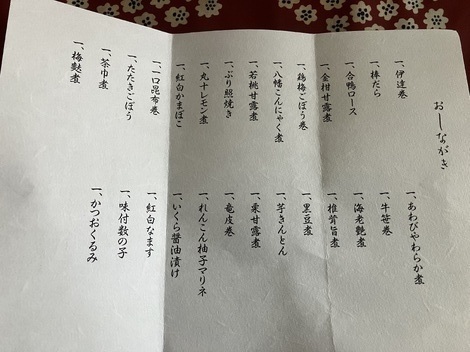 おしながき
一、伊達巻
一、棒だら
一、合鴨ロース
一、金柑甘露煮
一、鶏梅ごぼう巻
一、八幡こんにゃく煮
一、若桃甘露煮
一、ぶり照焼き
一、丸十レモン煮
一、紅白かまぼこ
一、一口昆布巻
一、たたきごぼう
一、茶巾煮
一、梅麩煮
一、あわびやわらか煮
一、牛笹巻
一、海老艶煮
一、椎茸旨煮
一、黒豆煮
一、芋きんとん
一、栗甘露煮
一、竜皮巻
一、れんこん柚子マリネ
一、いくら醤油漬け
一、紅白なます
一、味付数の子
一、かつおくるみ